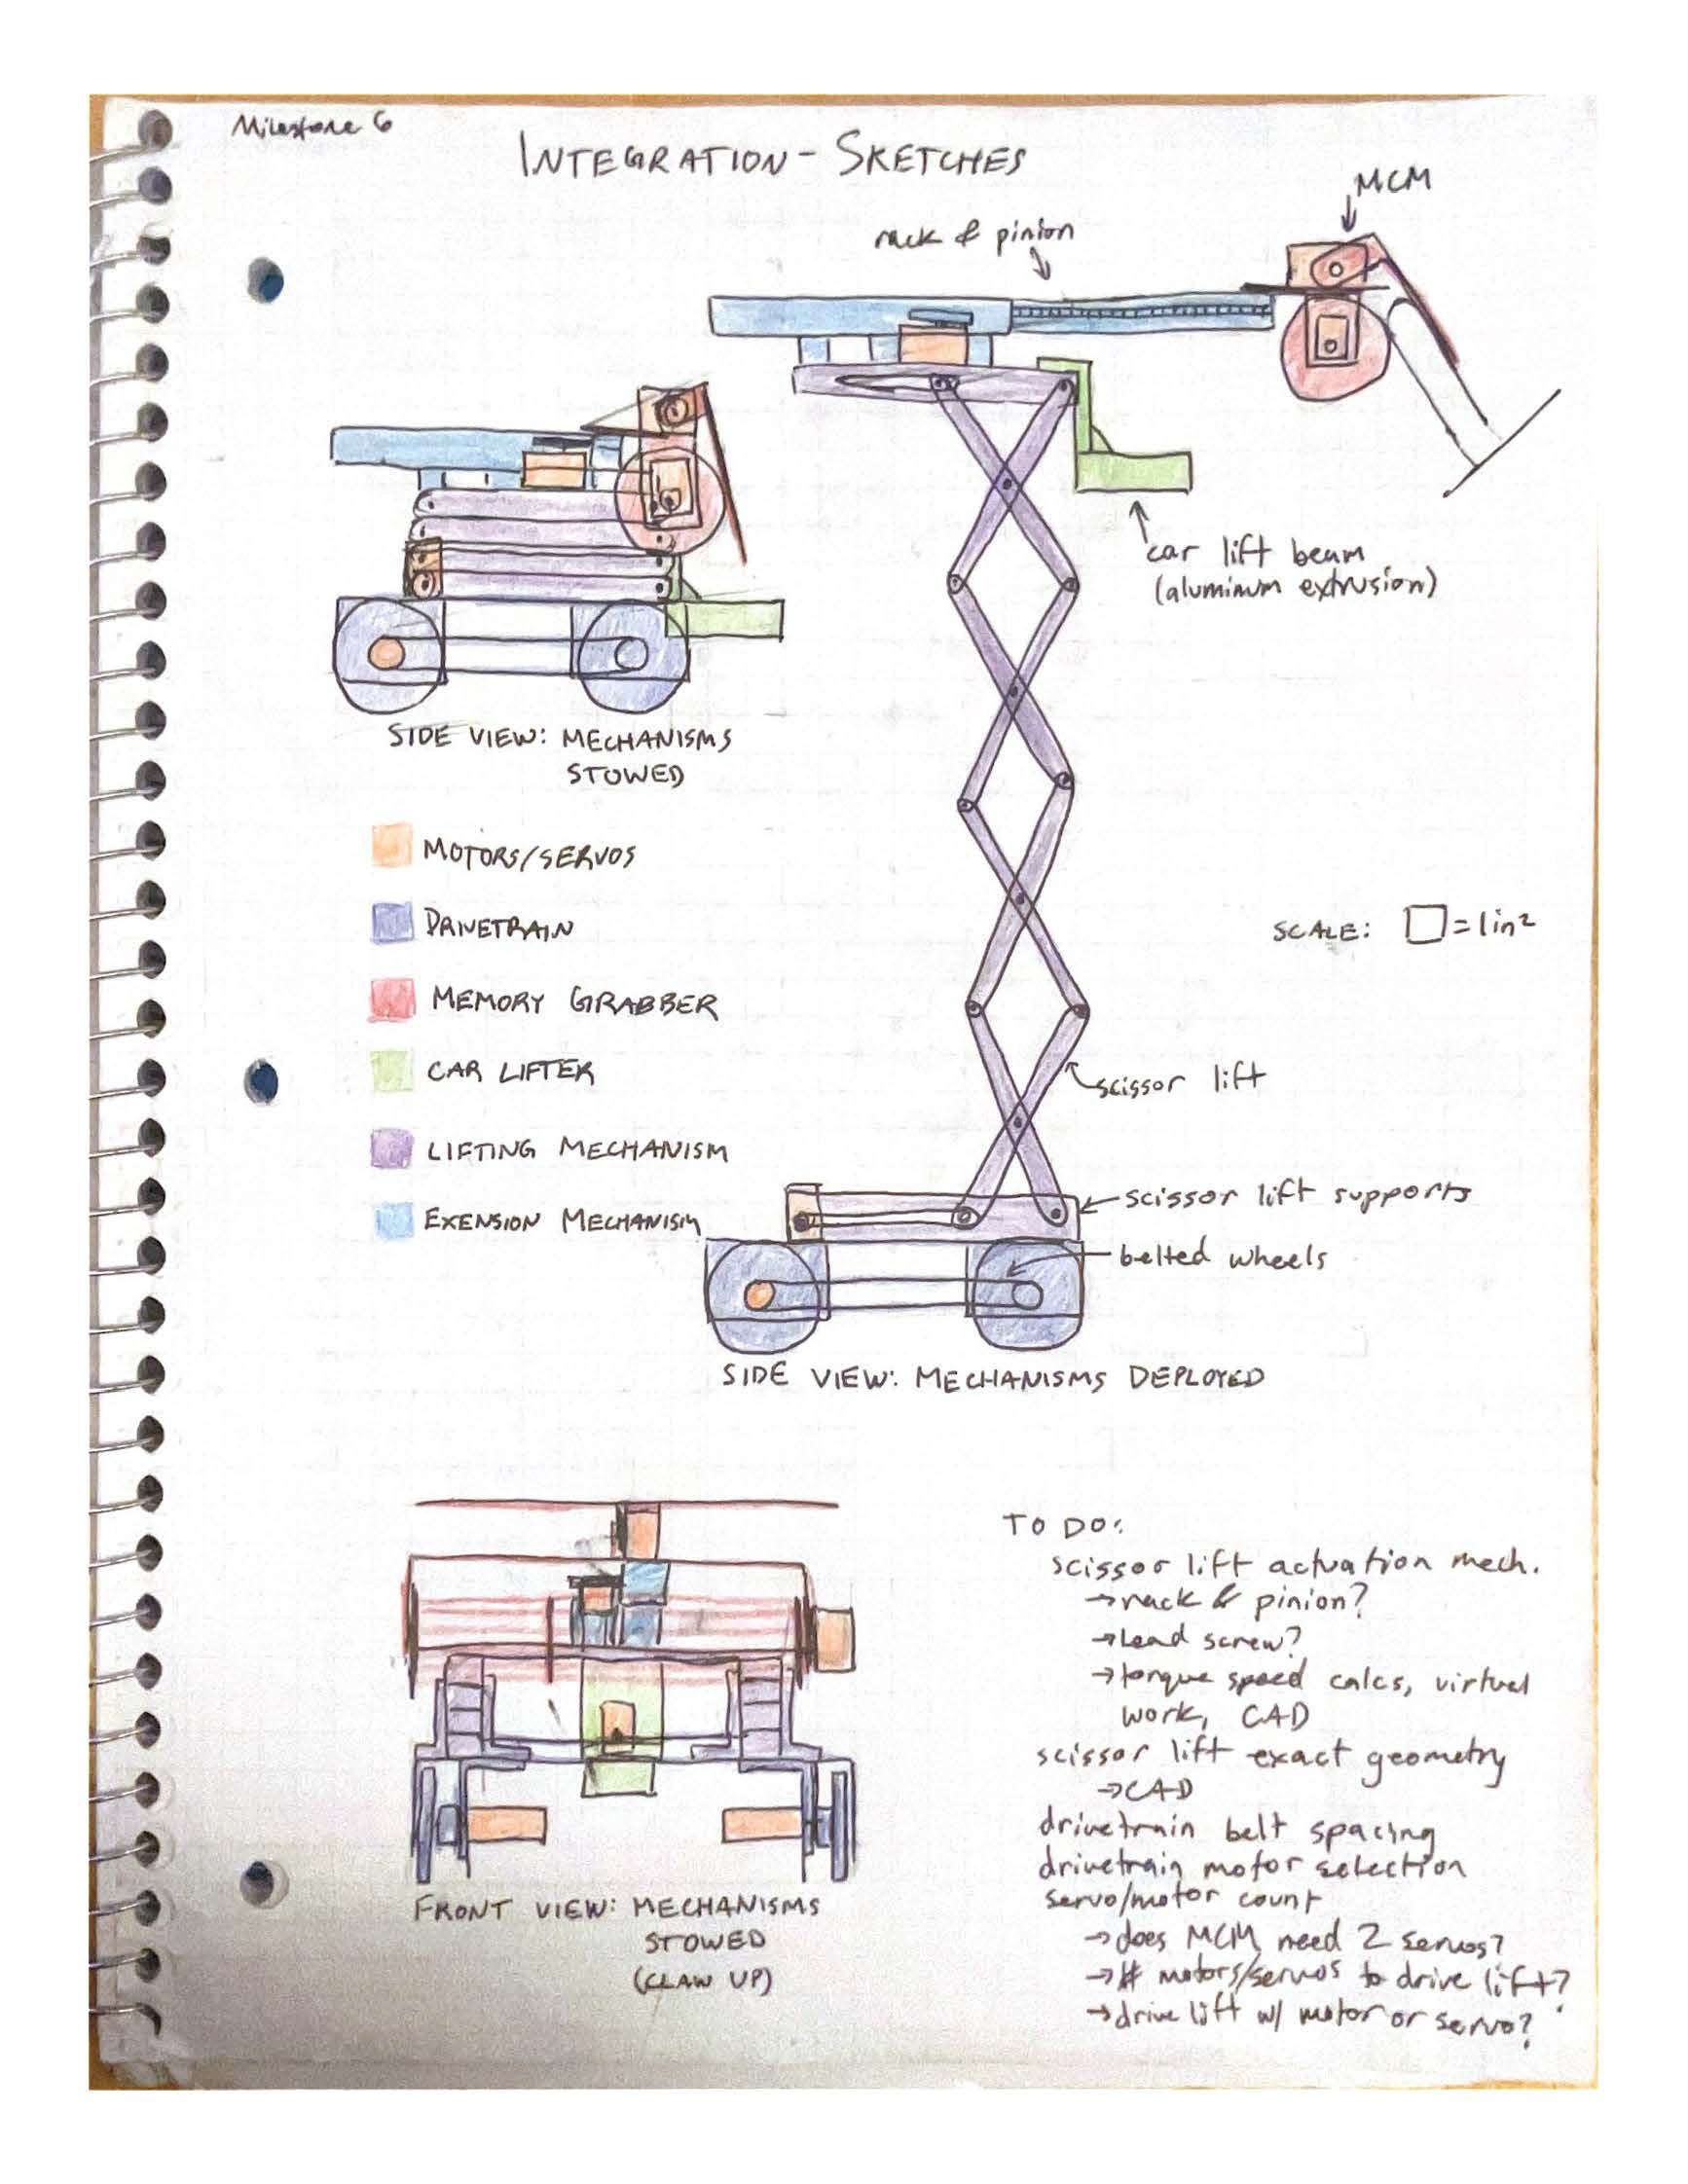 Milestone 6
INTEGRATION - SKETCHES
MCM
rack & pinion
car lift beam
(aluminum extrusion)
SIDE VIEW: MECHANISMS
STOWED
MOTORS/SERVOS
DRIVETRAIN
MEMORY GRABBER
CAR LIFTER
LIFTING MECHANISM
EXENSION MECHANISM
SCALE: □ = 1 in²
scissor lift
scissor lift supports
belted wheels
SIDE VIEW: MECHANISMS DEPLOYED
FRONT VIEW: MECHANISMS
STOWED
(CLAW UP)
TO DO:
scissor lift actuation mech.
→ rack & pinion?
→ Lead screw?
→ torque speed calcs, virtual
work, CAD
scissor lift exact geometry
→ CAD
drivetrain belt spacing
drivetrain motor selection
servo/motor count
→ does MCM need 2 servos?
→ # motors/servos to drive lift?
→ drive lift w/ motor or servo?